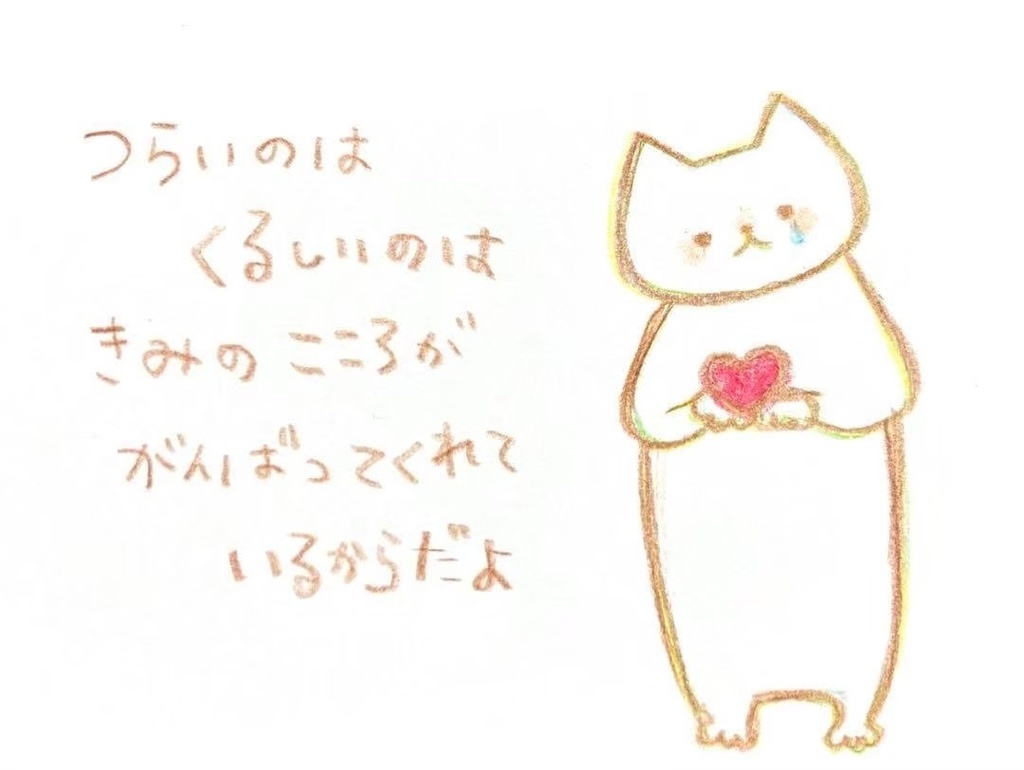 つらいのは
くるしいのは
きみの こころが
がんばってくれて
いるからだよ